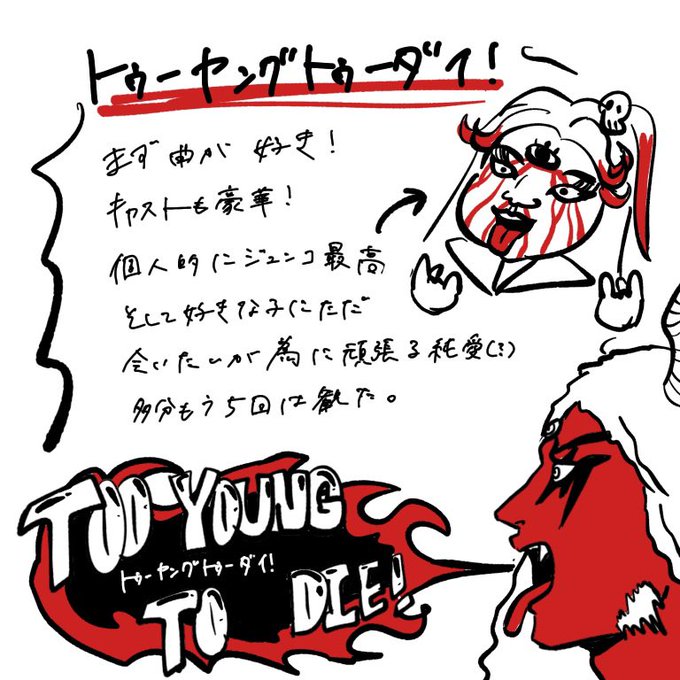 トゥーヤングトゥーダイ!
まず曲が好き!
キャストも豪華!
個人的にジュンコ最高
そして好きな子にただ
会いたいが為に頑張る純愛(?)
多分もう5回は観た。
TOO YOUNG
トゥーヤングトゥーダイ!
TO DIE!